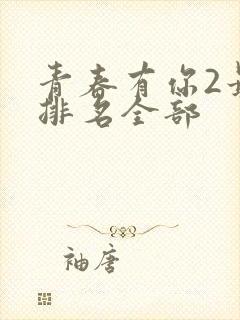 青春有你2
排名全部
袖唐